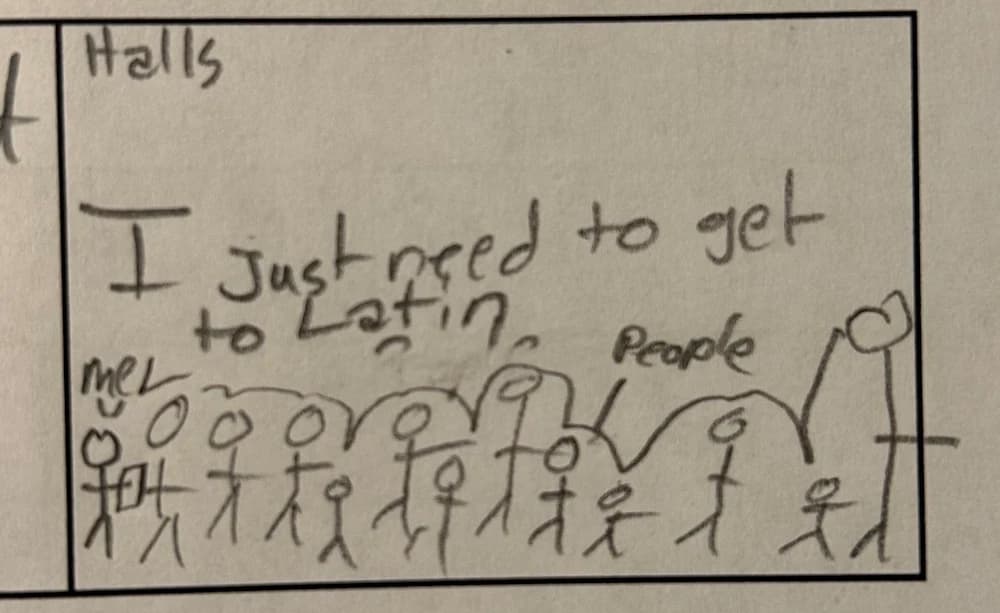 Halls
I just need to get
to Latin.
People
me